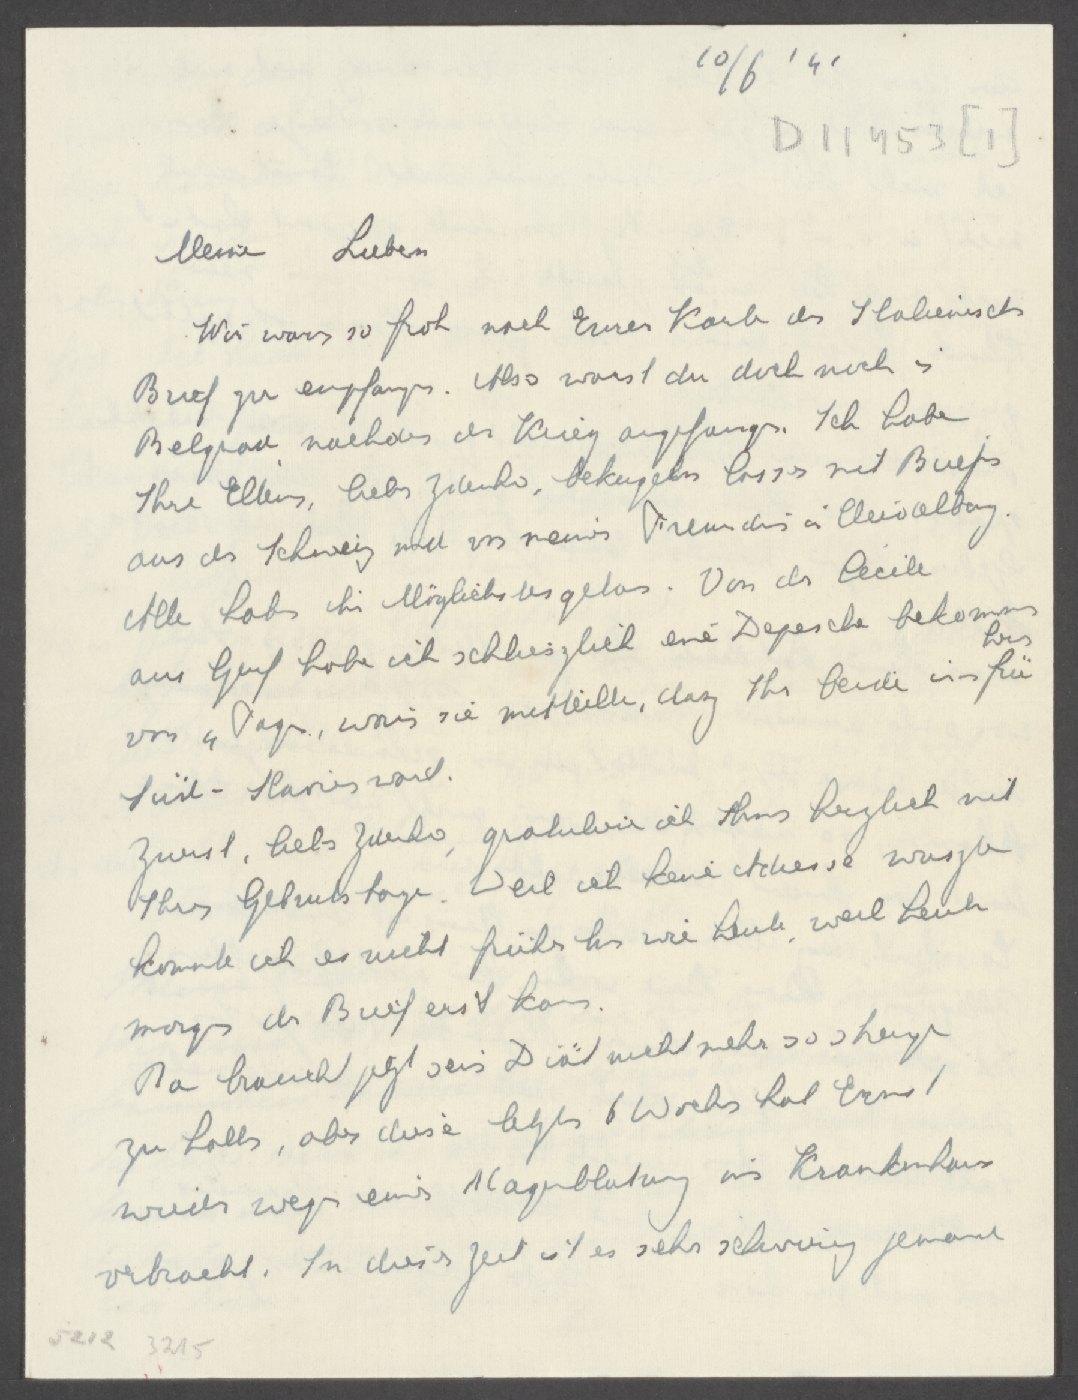 10/6 '41
D 11453 [1]
Meine Lieben
Wir waren so froh nach Eurer Karte den Italienischen
Brief zu empfangen. Also warst du doch noch in
Belgrad nachdem der Krieg angefangen. Ich habe
Ihre Eltern, lieber Zdenko, lassen mit Briefen
aus der Schweiz und von meiner Freundin in
Alle haben ihr Möglichstes getan. Von der Cécile
aus Genf habe ich schliesslich eine Depesche bekommen
von 4 Tage, worin sie mitteilte, dasz Ihr beide im frü
heren
Süd-Slavien ward.
Zuerst, lieber Zdenko, gratuliere ich Ihnen herzlich mit
Ihrem Geburtstage. Weil ich keine Adresse wuszte
konnte ich es nicht früher tun wie heute, weil heute
morgen der Brief erst kam.
Pa braucht jetzt sein Diät nicht mehr so strenge
zu halten, aber diese letzten 6 Wochen hat Ernst
wieder wegen einer Magenblutung im Krankenhaus
verbracht. In dieser Zeit ist es sehr schwierig jemand
5212 3215